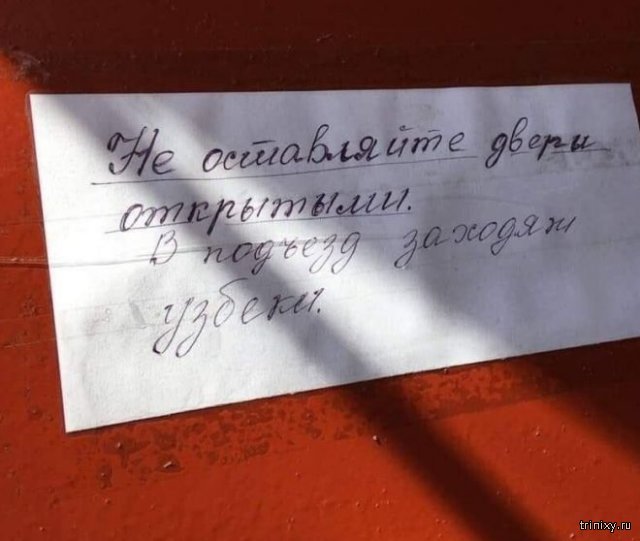 Не оставляйте двери
открытыми.
В подъезд заходят
узбеки.
trinixy.ru